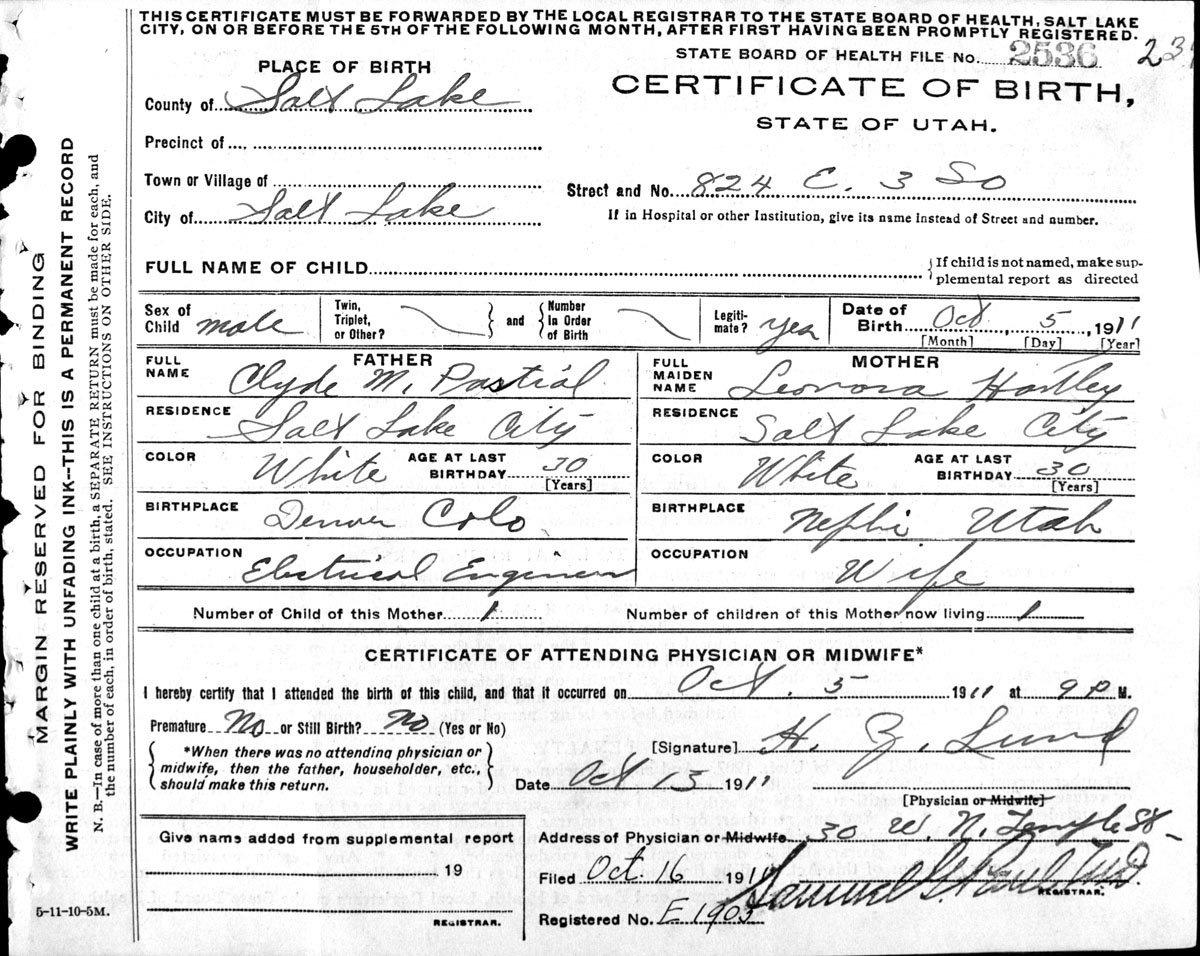 THIS CERTIFICATE MUST BE FORWARDED BY THE LOCAL REGISTRAR TO THE STATE BOARD OF HEALTH, SALT LAKE
CITY, ON OR BEFORE THE 5TH OF THE FOLLOWING MONTH, AFTER FIRST HAVING BEEN PROMPTLY REGISTERED.
STATE BOARD OF HEALTH FILE No. 2536
PLACE OF BIRTH
CERTIFICATE OF BIRTH,
STATE OF UTAH.
County of Salt Lake
Precinct of
Town or Village of
Street and No. 824 E. 3 So
City of Salt Lake
If in Hospital or other Institution, give its name instead of Street and number.
FULL NAME OF CHILD
If child is not named, make sup-
plemental report as directed
Sex of Child male
Twin, Triplet, or Other?
and
Number In Order of Birth
Legiti-mate? Yes
Date of Birth Oct, 5, 1911
[Month] [Day] [Year]
FATHER
FULL NAME Clyde M.
RESIDENCE Salt Lake City
COLOR White AGE AT LAST BIRTHDAY 30
[Years]
BIRTHPLACE Denver Colo
OCCUPATION Electrical Engineer
MOTHER
FULL MAIDEN NAME Leonora Hartley
RESIDENCE Salt Lake City
COLOR White AGE AT LAST BIRTHDAY 30
[Years]
BIRTHPLACE Nephi Utah
OCCUPATION Wife
Number of Child of this Mother 1
Number of children of this Mother now living 1
CERTIFICATE OF ATTENDING PHYSICIAN OR MIDWIFE*
I hereby certify that I attended the birth of this child, and that it occurred on Oct. 5 1911 at 9 P M.
Premature No or Still Birth? No (Yes or No)
*When there was no attending physician or
midwife, then the father, householder, etc.,
should make this return.
[Signature] H. Z. Lund
Date Oct 13 1911
[Physician or Midwife]
Address of Physician or Midwife 30 W. N. Temple St
Give name added from supplemental report
19
REGISTRAR.
Filed Oct. 16 191
REGISTRAR.
Registered No. E 1903
5-11-10-5M.
MARGIN RESERVED FOR BINDING
WRITE PLAINLY WITH UNFADING INK--THIS IS A PERMANENT RECORD
N. B.—In case of more than one child at a birth, a SEPARATE RETURN must be made for each, and
the number of each, in order of birth, stated. SEE INSTRUCTIONS ON OTHER SIDE.